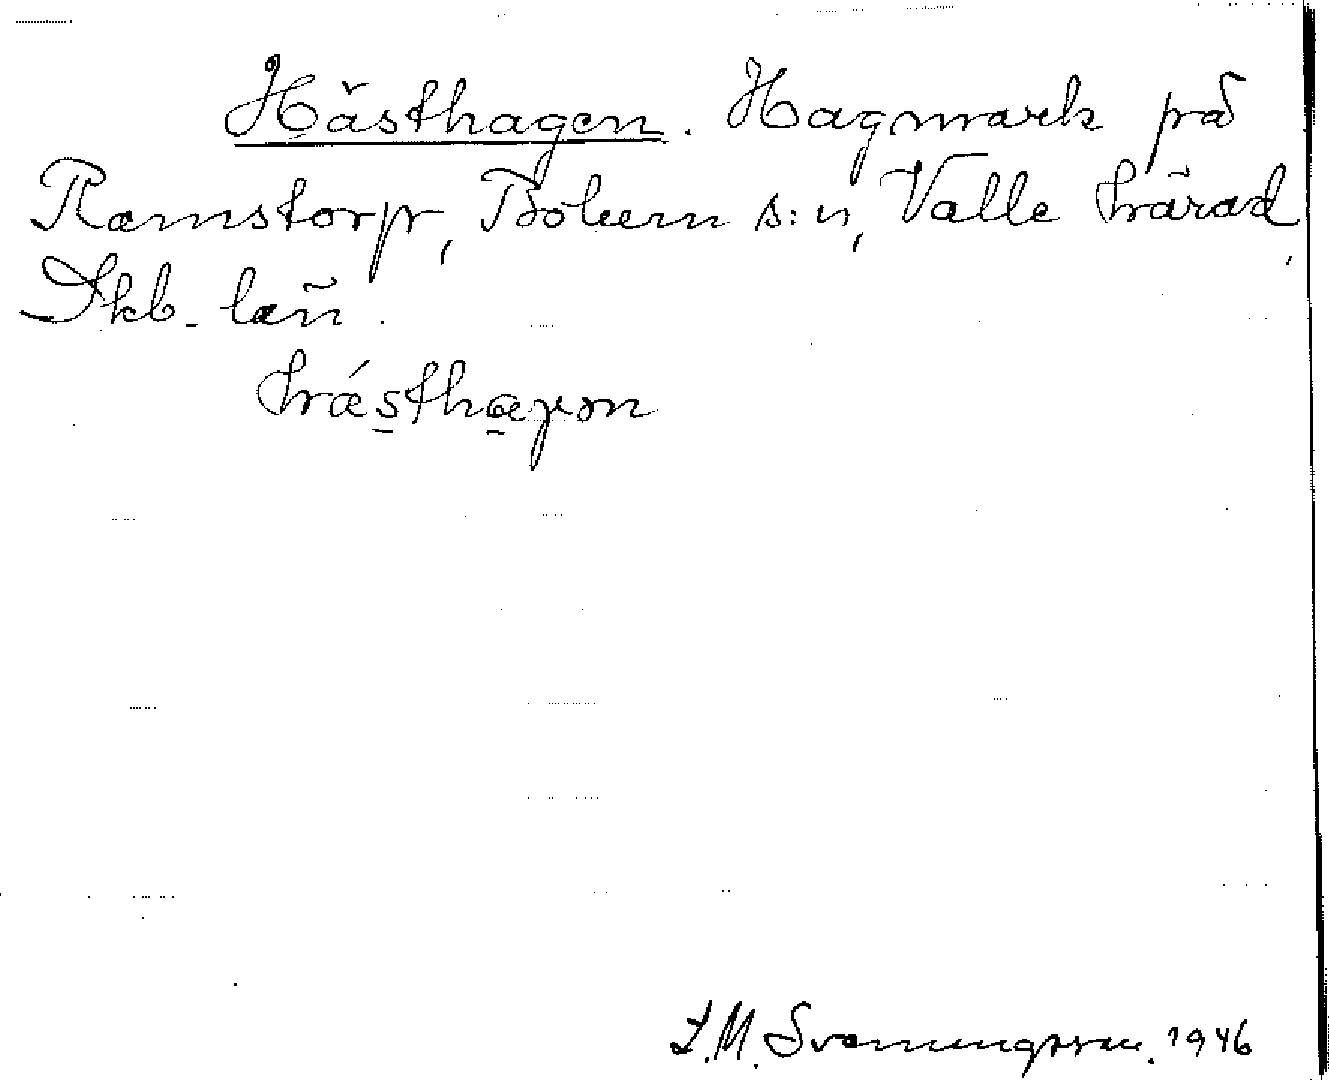 Hästhagen. Hagmark på
Ramstorp, Bolum s:n, Valle härad,
Skb. län.
hǽsthaɣən
I.M. Svenningsson. 1946